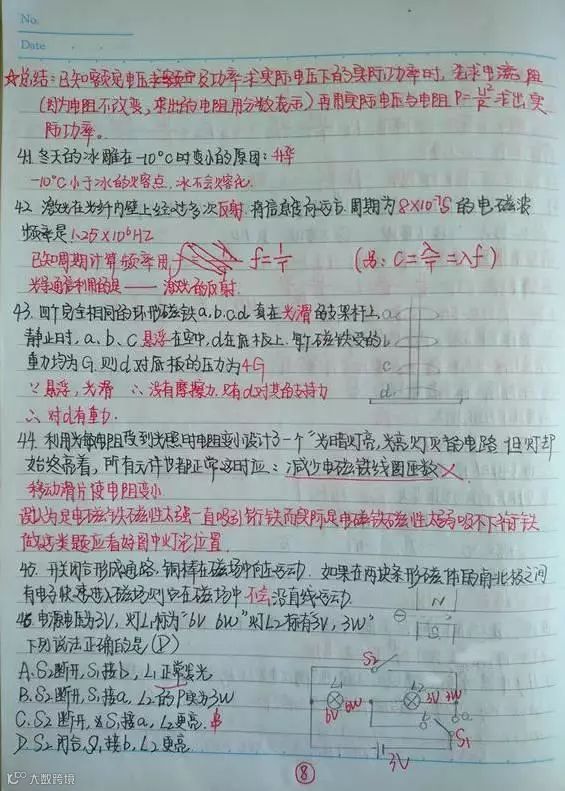 No.
Date
☆总结:已知额定电压及功率求实际电压下的实际功率时,先求电阻
(因为电阻不改变,求出的电阻用分数表示)再用实际电压与电阻 P=U²/R 求出实
际功率。
41.冬天的冰雕在-10°C时变小的原因:升华
-10°C小于冰的熔点,冰不会熔化
42.激光在光纤内壁上经过多次反射,将信息传向远方.周期为8×10⁻⁷S的电磁波
频率是1.25×10⁶HZ
已知周期计算频率用 f=1/T (品:C=λ/T=λf)
光导通信利用的是——激光的反射.
43.四个完全相同的环形磁铁a,b,c,d套在光滑的支架杆上
静止时,a、b、c悬浮在空中,d在底板上.每个磁铁受的
重力均为G.则d对底板的压力为4G
∵悬浮,光滑 ∴没有摩擦力,只有d对其的支持力
∴对d有重力.
a
b
c
d
44.利用光敏电阻受到光照时电阻变小设计了一个"光暗灯亮,光亮灯灭"的电路 但灯却
始终亮着,所有元件也都正常,这时应:减少电磁铁线圈匝数 ×
移动滑片使电阻变小
误认为是电磁铁磁性太强一直吸引衔铁而实际是电磁铁磁性太弱吸不下衔铁
做这类题应看好图中灯泡位置
45.开关闭合形成通路.铜棒在磁场中在运动.如果在两块条形磁体的南北极之间
有电子快速进入磁场,则它在磁场中不会沿直线运动.
N
S
46.电源电压为3V,灯L1标为"6V 6W"灯L2标有3V,3W"
下列说法正确的是(D)
A.S2断开,S1接b,L1正常发光
B.S2断开,S1接a,L2的P实为3W
C.S2断开,S1接a,L2更亮.
D.S2闭合,S1接b,L2更亮
S2
L1
L2
6V 6W
3V 3W
b
a
S1
3V
8
大数跨境